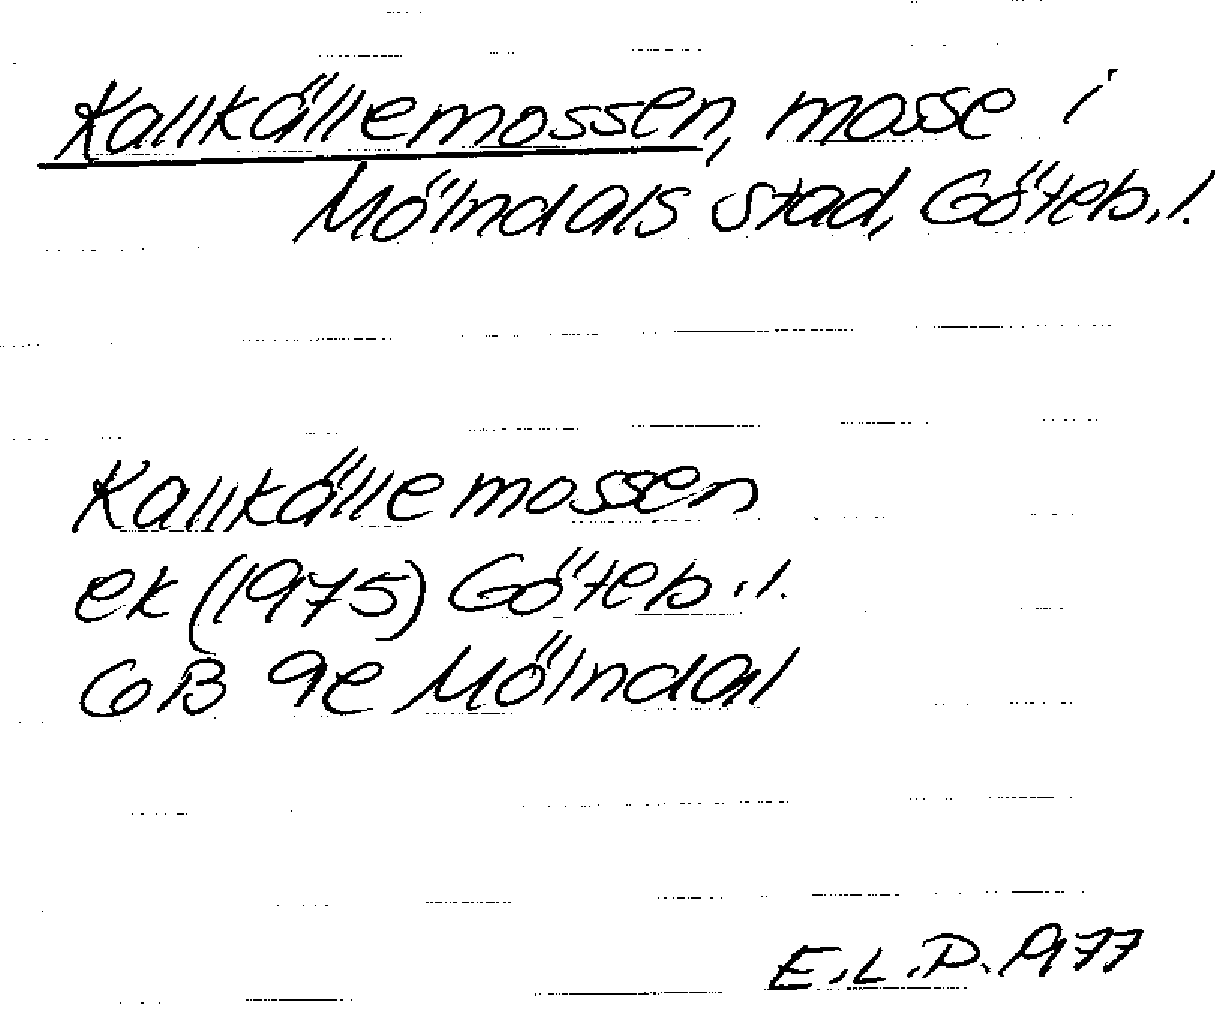 Kallkällemossen, mosse i
Mölndals stad, Göteb. l.
Kallkällemossen
ek (1975) Göteb. l.
GB 9e Mölndal
E.L.P. 1977